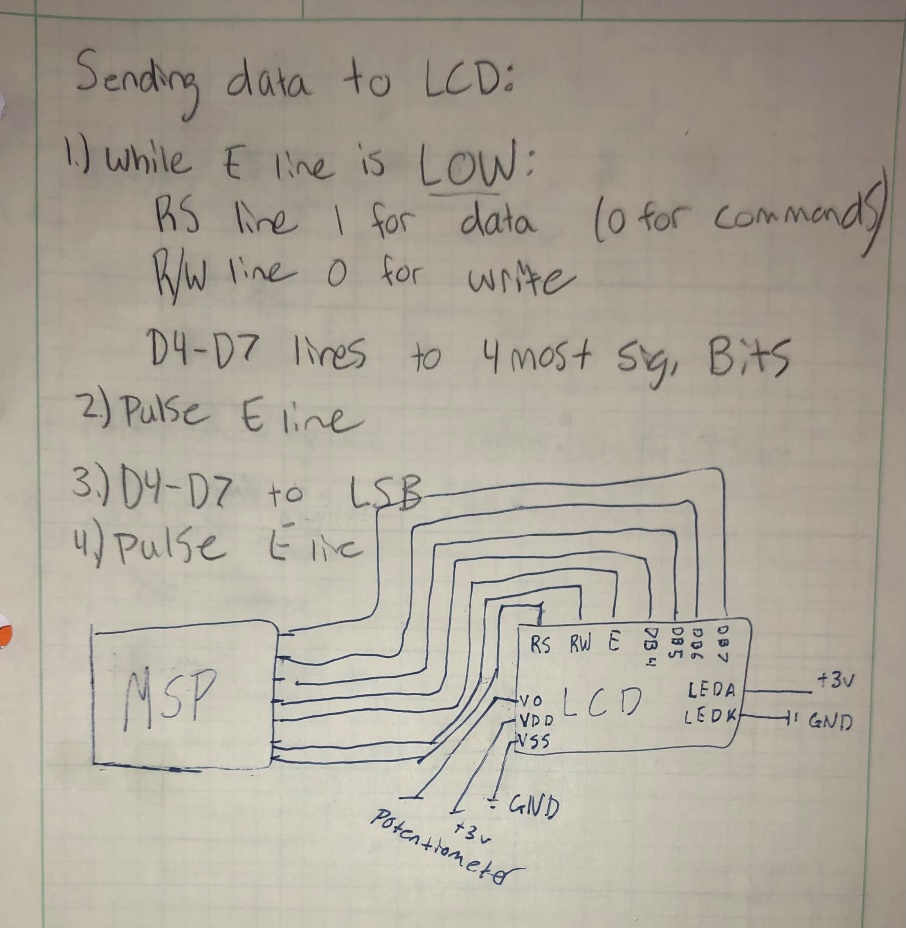 Sending data to LCD:
1.) While E line is LOW:
RS line 1 for data (0 for commands)
R/W line 0 for write
D4-D7 lines to 4 most sig. Bits
2.) Pulse E line
3.) D4-D7 to LSB
4.) Pulse E line
MSP
RS RW E DB4 DB5 DB6 DB7
LCD
VO
VDD
VSS
LEDA
LEDK
+3v
GND
GND
+3v
Potentiometer